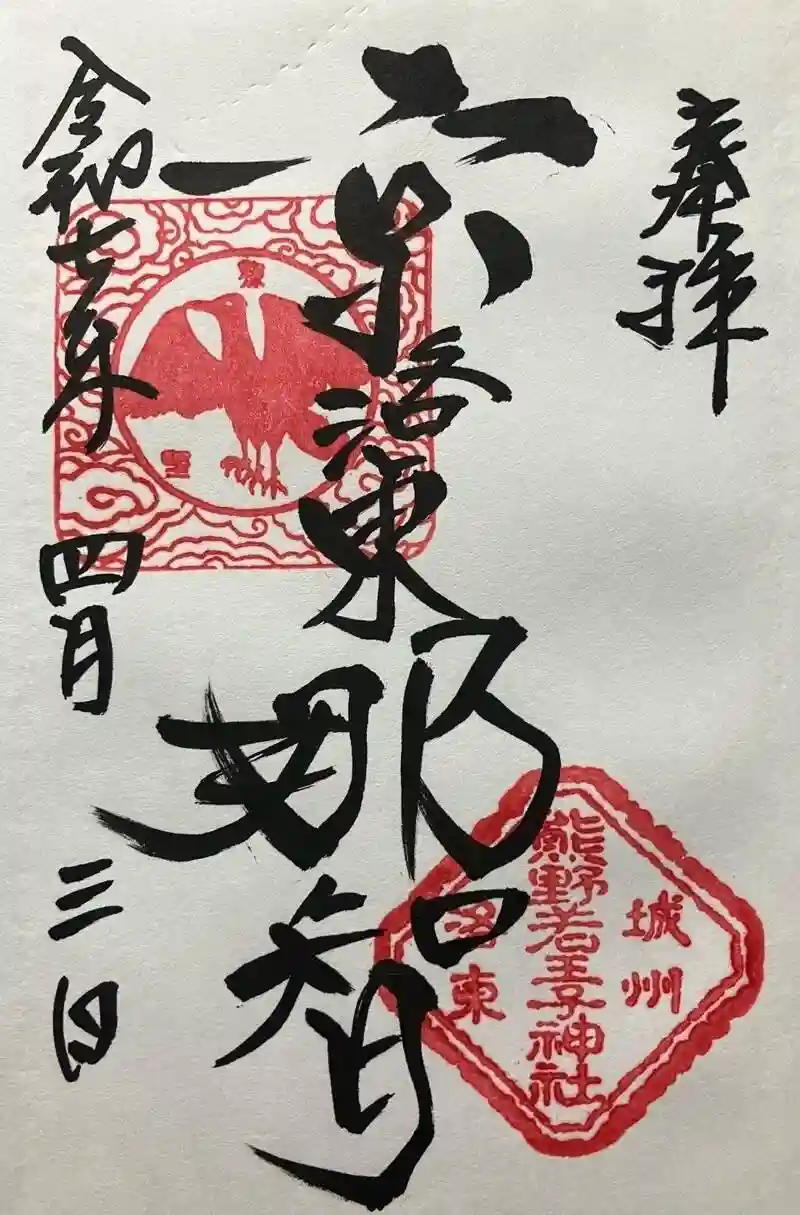 奉拝
京洛東那智
令和七年四月三日
城州
熊野若王子神社
洛東